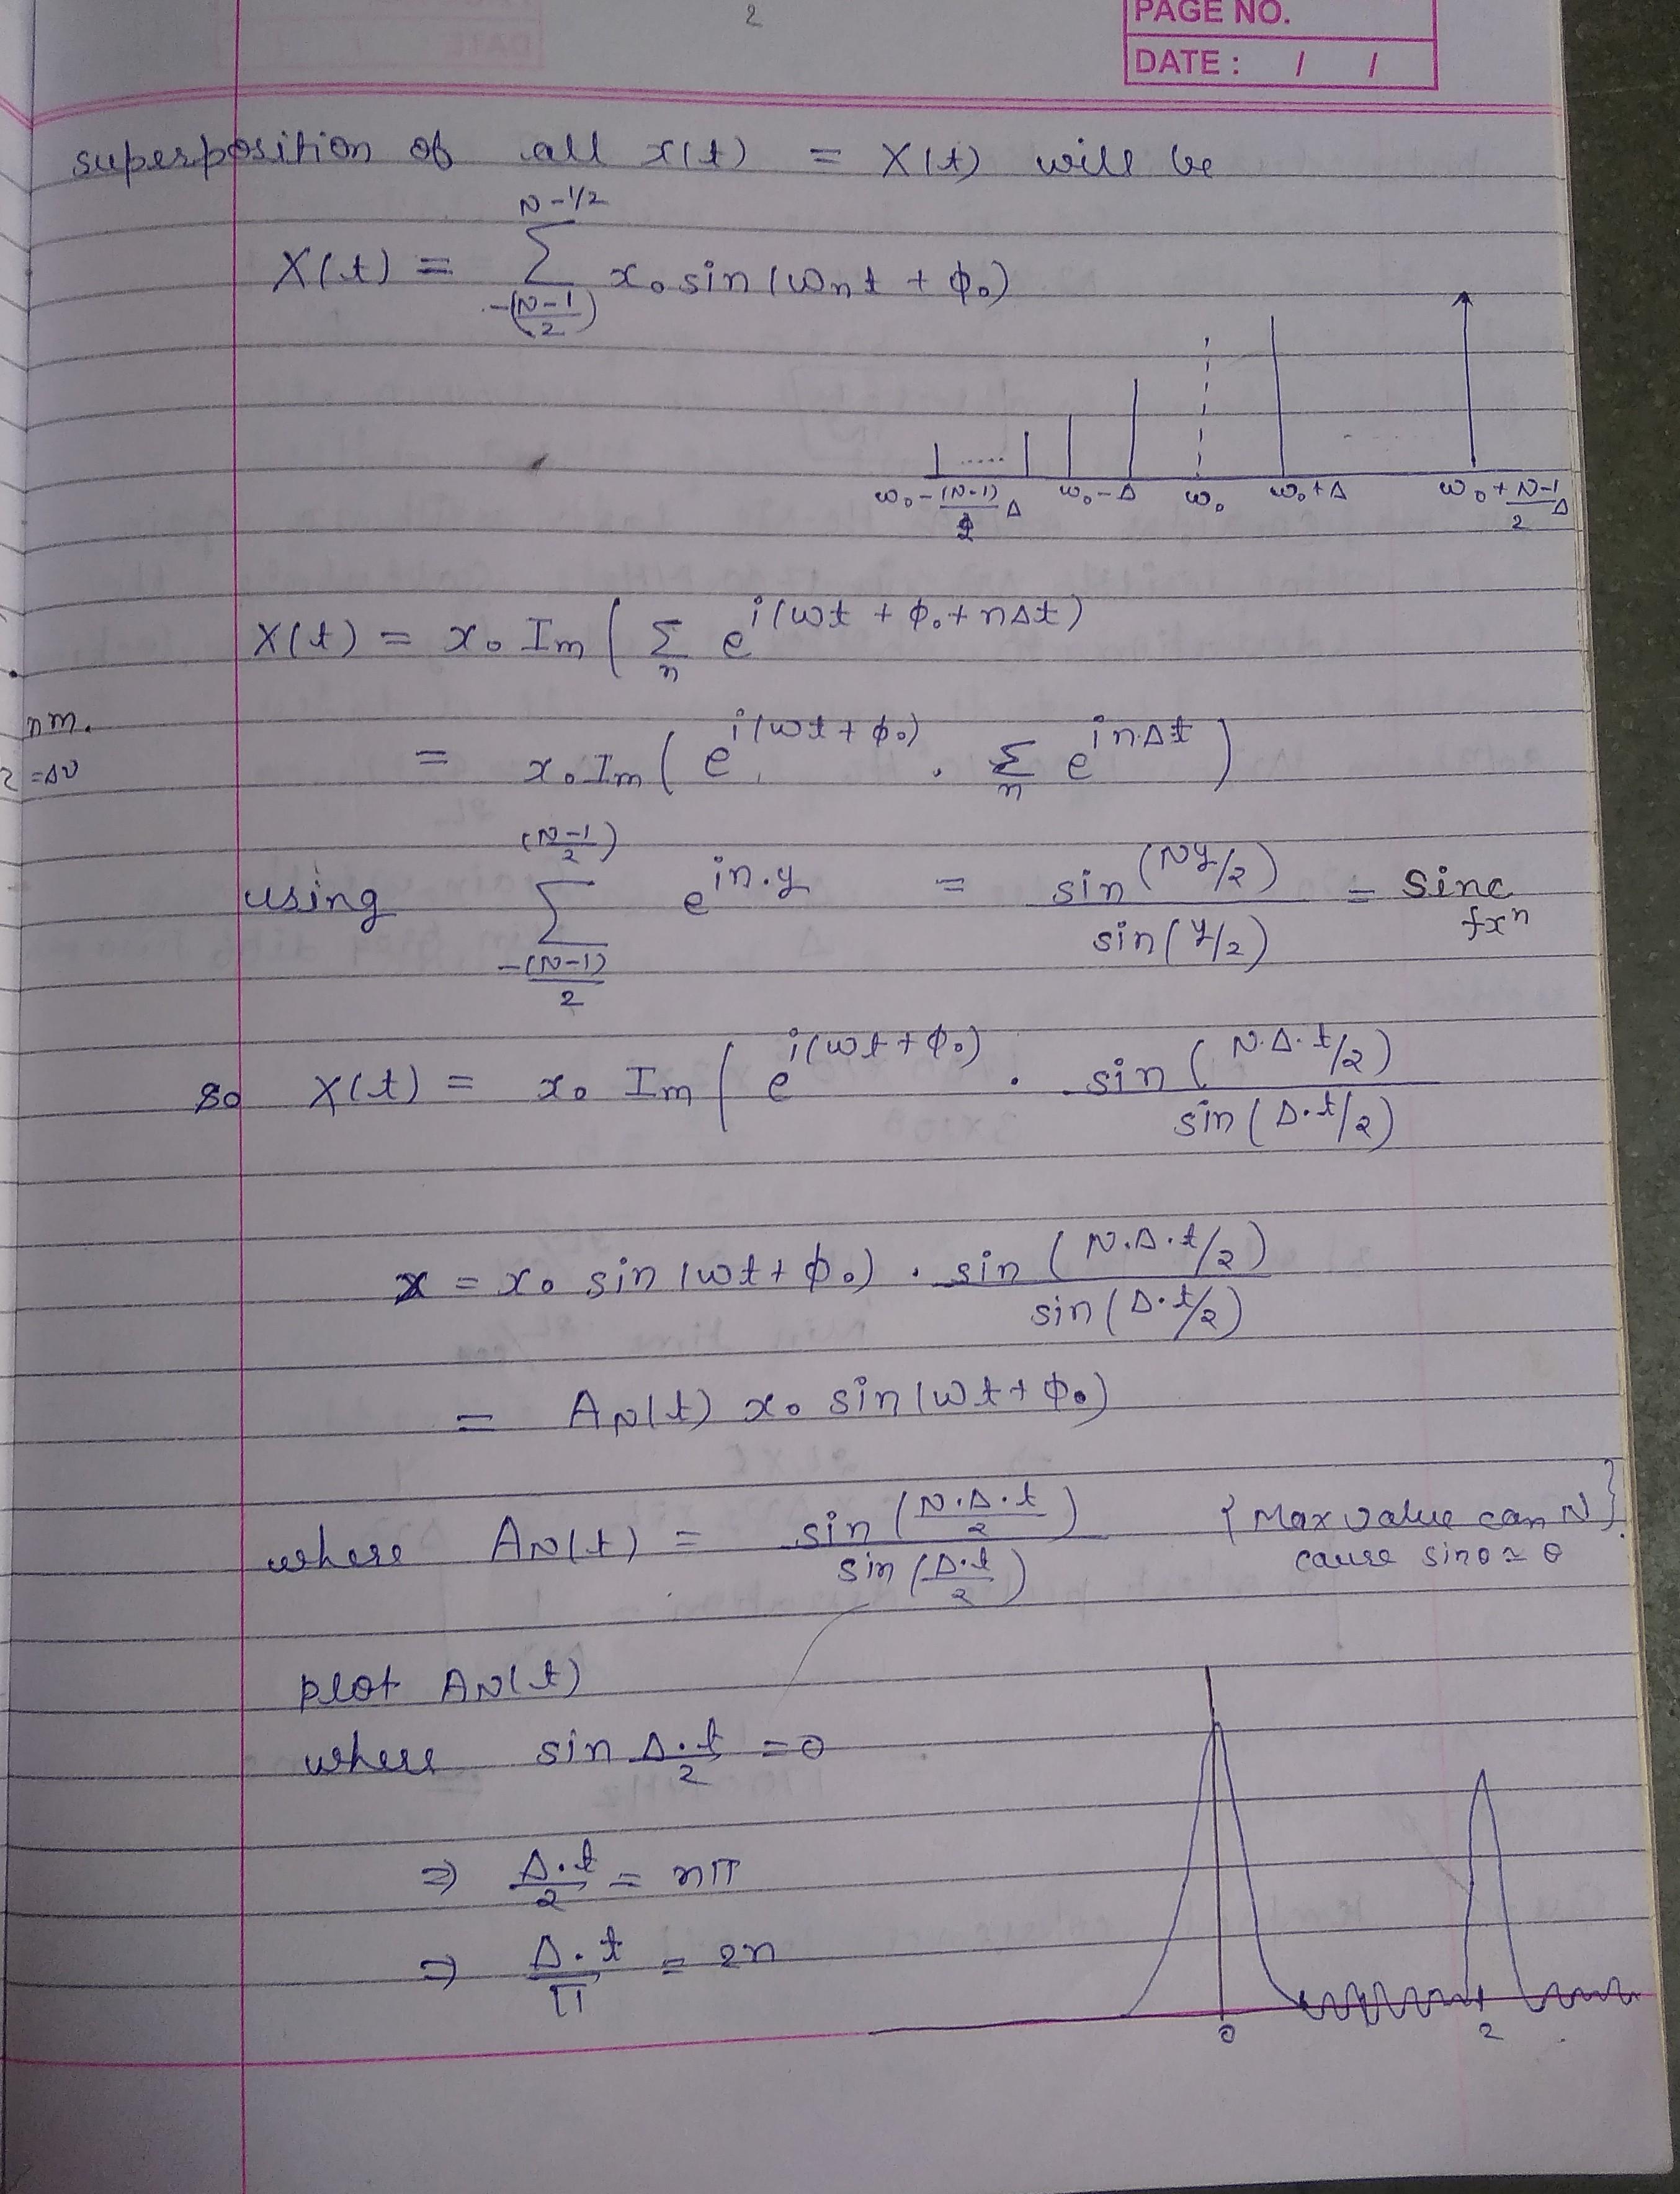 2
PAGE NO.
DATE : / /
superposition of all x(t) = X(t) will be
N-1/2
X(t) = Σ x₀ sin(ωnt + ϕ₀)
-(N-1/2)
ω₀-(N-1)/2 Δ ω₀-Δ ω₀ ω₀+Δ ω₀+N-1/2 Δ
X(t) = x₀ Im ( Σn e^i(ωt + ϕ₀ + nΔt)
nm.
= x₀ Im ( e^i(ωt + ϕ₀) . Σn e^inΔt )
=Δν
(N-1/2)
using Σ e^in.y = sin(Ny/2) / sin(y/2) = Sinc fxⁿ
-(N-1)/2
so X(t) = x₀ Im ( e^i(ωt+ϕ₀) . sin(N.Δ.t/2) / sin(Δ.t/2)
x = x₀ sin(ωt + ϕ₀) . sin(N.Δ.t/2) / sin(Δ.t/2)
= AN(t) x₀ sin(ωt + ϕ₀)
where AN(t) = sin(N.Δ.t/2) / sin(Δ.t/2) {Max value can N}
cause sinθ ≃ θ
plot AN(t)
where sin Δ.t/2 = 0
⇒ Δ.t/2 = nπ
⇒ Δ.t/π = 2n
0 2